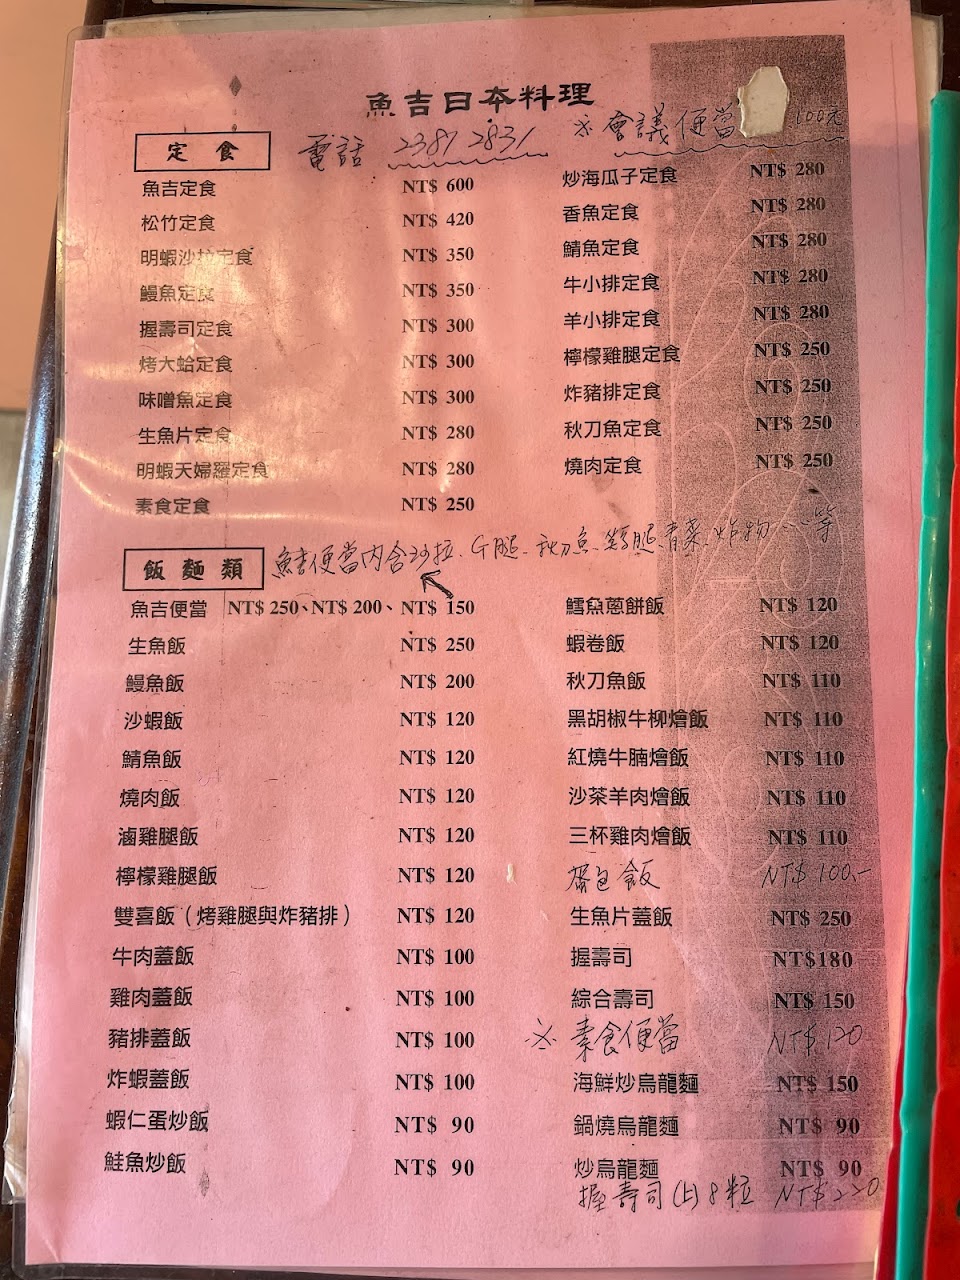 魚吉日本料理
定食
電話 2381 2831
※會議便當 100元
魚吉定食 NT$ 600
松竹定食 NT$ 420
明蝦沙拉定食 NT$ 350
鰻魚定食 NT$ 350
握壽司定食 NT$ 300
烤大蛤定食 NT$ 300
味噌魚定食 NT$ 300
生魚片定食 NT$ 280
明蝦天婦羅定食 NT$ 280
素食定食 NT$ 250
炒海瓜子定食 NT$ 280
香魚定食 NT$ 280
鯖魚定食 NT$ 280
牛小排定食 NT$ 280
羊小排定食 NT$ 280
檸檬雞腿定食 NT$ 250
炸豬排定食 NT$ 250
秋刀魚定食 NT$ 250
燒肉定食 NT$ 250
飯麵類
魚吉便當內含沙拉、G腿、秋刀魚、青菜、炸物……等
魚吉便當 NT$ 250、NT$ 200、NT$ 150
生魚飯 NT$ 250
鰻魚飯 NT$ 200
沙蝦飯 NT$ 120
鯖魚飯 NT$ 120
燒肉飯 NT$ 120
滷雞腿飯 NT$ 120
檸檬雞腿飯 NT$ 120
雙喜飯（烤雞腿與炸豬排） NT$ 120
牛肉蓋飯 NT$ 100
雞肉蓋飯 NT$ 100
豬排蓋飯 NT$ 100
炸蝦蓋飯 NT$ 100
蝦仁蛋炒飯 NT$ 90
鮭魚炒飯 NT$ 90
鱈魚蔥餅飯 NT$ 120
蝦卷飯 NT$ 120
秋刀魚飯 NT$ 110
黑胡椒牛柳燴飯 NT$ 110
紅燒牛腩燴飯 NT$ 110
沙茶羊肉燴飯 NT$ 110
三杯雞肉燴飯 NT$ 110
蛋包飯 NT$ 100.-
生魚片蓋飯 NT$ 250
握壽司 NT$180
綜合壽司 NT$ 150
※素食便當 NT$ 120
海鮮炒烏龍麵 NT$ 150
鍋燒烏龍麵 NT$ 90
炒烏龍麵 NT$ 90
握壽司(上)8粒 NT$220